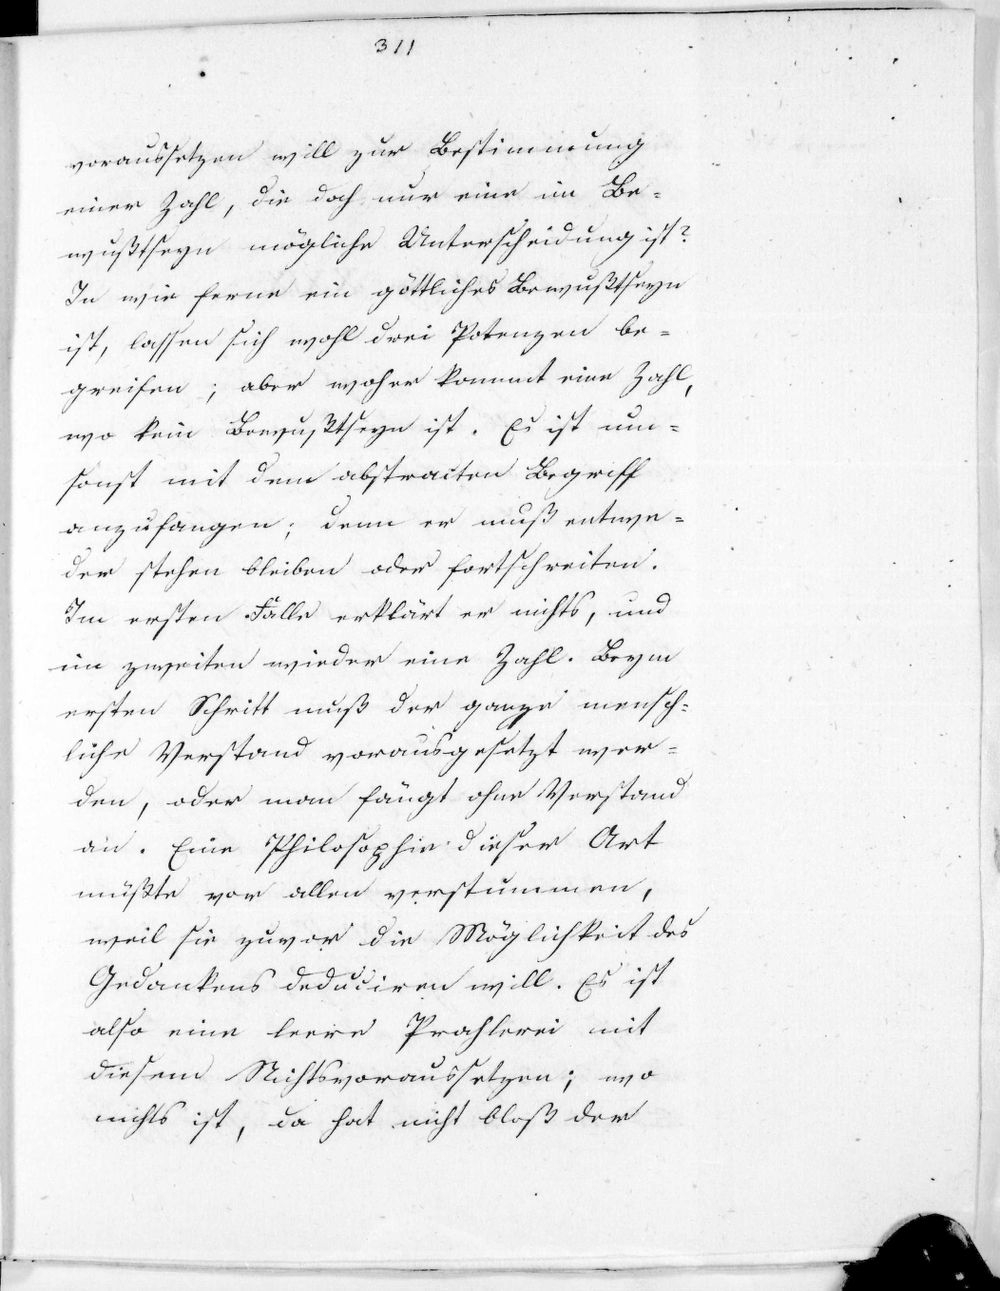 311
voraussetzen will zur Bestimmung
einer Zahl, die doch nur eine im Be-
wußtseyn mögliche Unterscheidung ist?
In wie ferne ein göttliches Bewußtseyn
ist, lassen sich wohl drei Potenzen be-
greifen; aber woher kommt eine Zahl,
wo kein Bewußtseyn ist. Es ist um-
sonst mit dem abstracten Begriff
anzufangen; denn er muß entwe-
der stehen bleiben oder fortschreiten.
Im ersten Falle erklärt er nichts, und
im zweiten wieder eine Zahl. Beym
ersten Schritt muß der ganze mensch-
liche Verstand vorausgesetzt wer-
den, oder man fängt ohne Verstand
an. Eine Philosophie dieser Art
müßte vor allen verstummen,
weil sie zuvor die Möglichkeit des
Gedankens deduciren will. Es ist
also eine leere Prahlerei mit
diesem Nichtsvoraussetzen; wo
nichts ist, da hat nicht bloß der